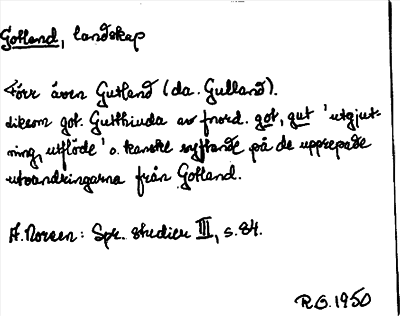 Gotland, landskap
Förr även Gutland (da. Gulland).
liksom got. Gutthiuda av fnord. got, gut 'utgjut-
ning, utflöde' o. kanske syftande på de upprepade
utvandringarna från Gotland.
A. Noreen: Spr. studier III, s. 84.
R.G. 1950